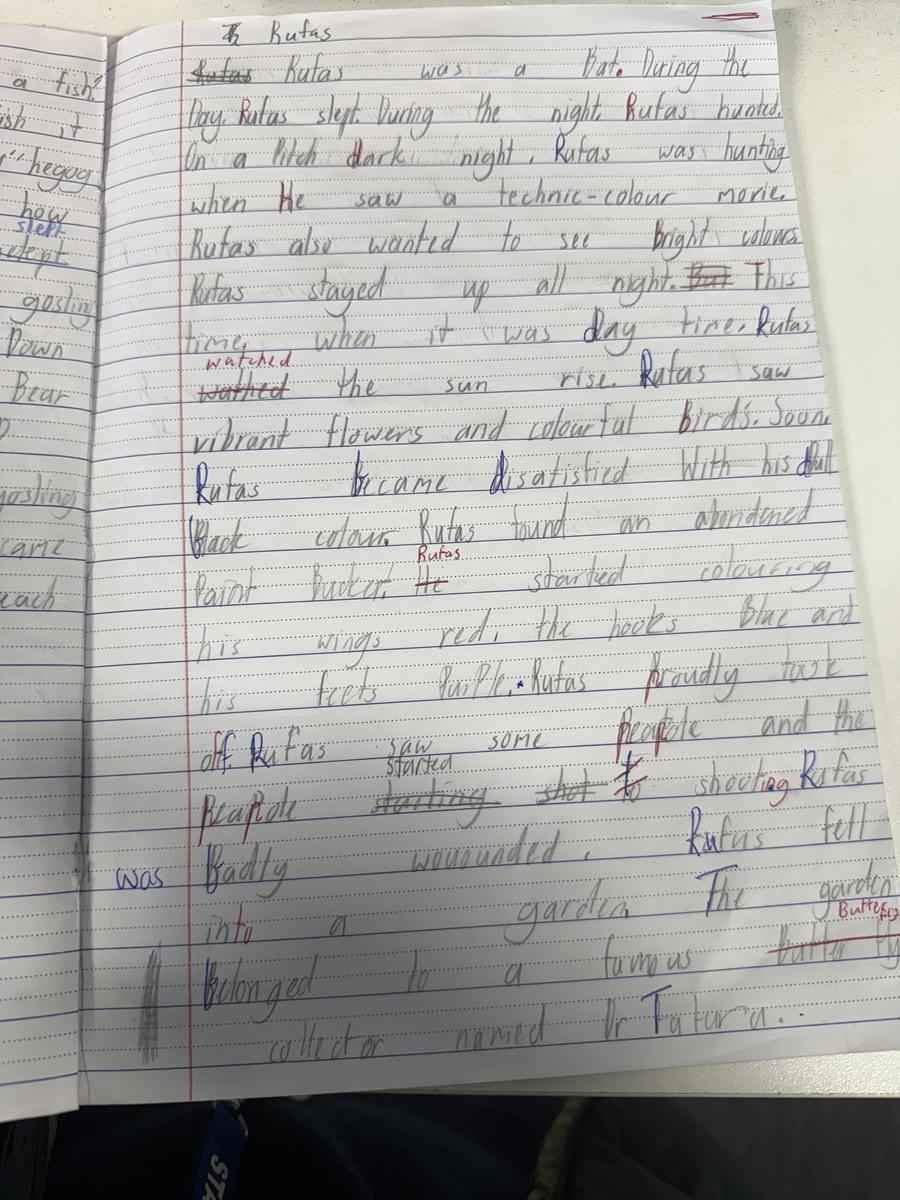 Rufas
a fish?
ish it
hegog
how
slept
slept
gosling
Down
Bear
gosling
came
each
Rufas Rufas was a Bat. During the
Day, Rufas slept. During the night, Rufas hunted.
On a Pitch dark night, Rufas was hunting
when He saw a technic-colour movie.
Rufas also wanted to see bright colours
Rufas stayed up all night. But This
time, when it was day time, Rufas
watched
wathed the sun rise. Rufas saw
vibrant flowers and colourful birds. Soon,
Rufas became disatisfied With his dull
Black colour. Rufas found an abondened
Rufas
Paint Bucket. He started colouring
his wings red, the hooks Blue and
his feets PurPle. Rufas proudly took
off. Rufas saw some peaple and the
started
peaple starting shot to shooting Rufas
was Badly wouounded. Rufus fell
into a garden. The garden
Butterfly
Belonged to a famous butter fly
collector named Dr Tatura..
STA